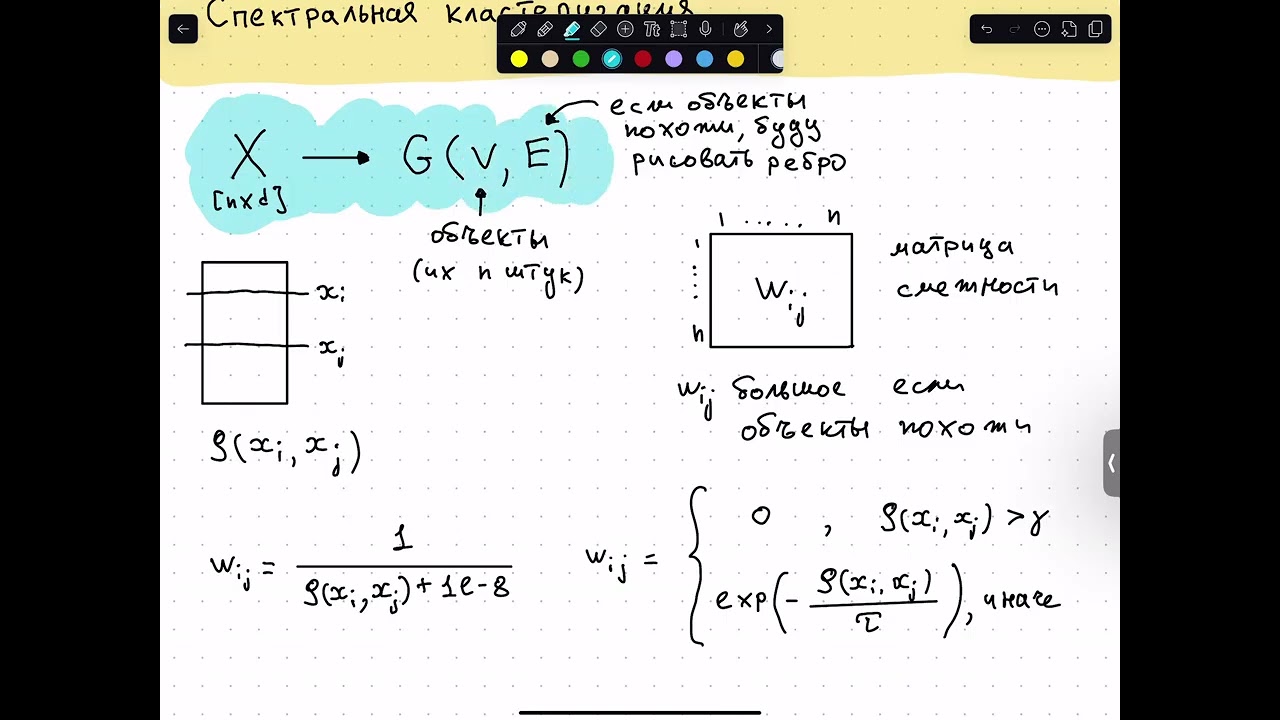 Спектральная кластеризация
Tt
X → G(V, E)
[n×d]
если объекты
похожи, буду
рисовать ребро
объекты
(их n штук)
xi
xj
ρ(xi, xj)
1 ..... n
1
⋮
n
Wij
матрица
смежности
wij большое если
объекты похожи
wij = 1 / (ρ(xi, xj) + 1e-8)
wij = { 0 , ρ(xi, xj) > γ
exp(- ρ(xi, xj) / τ), иначе